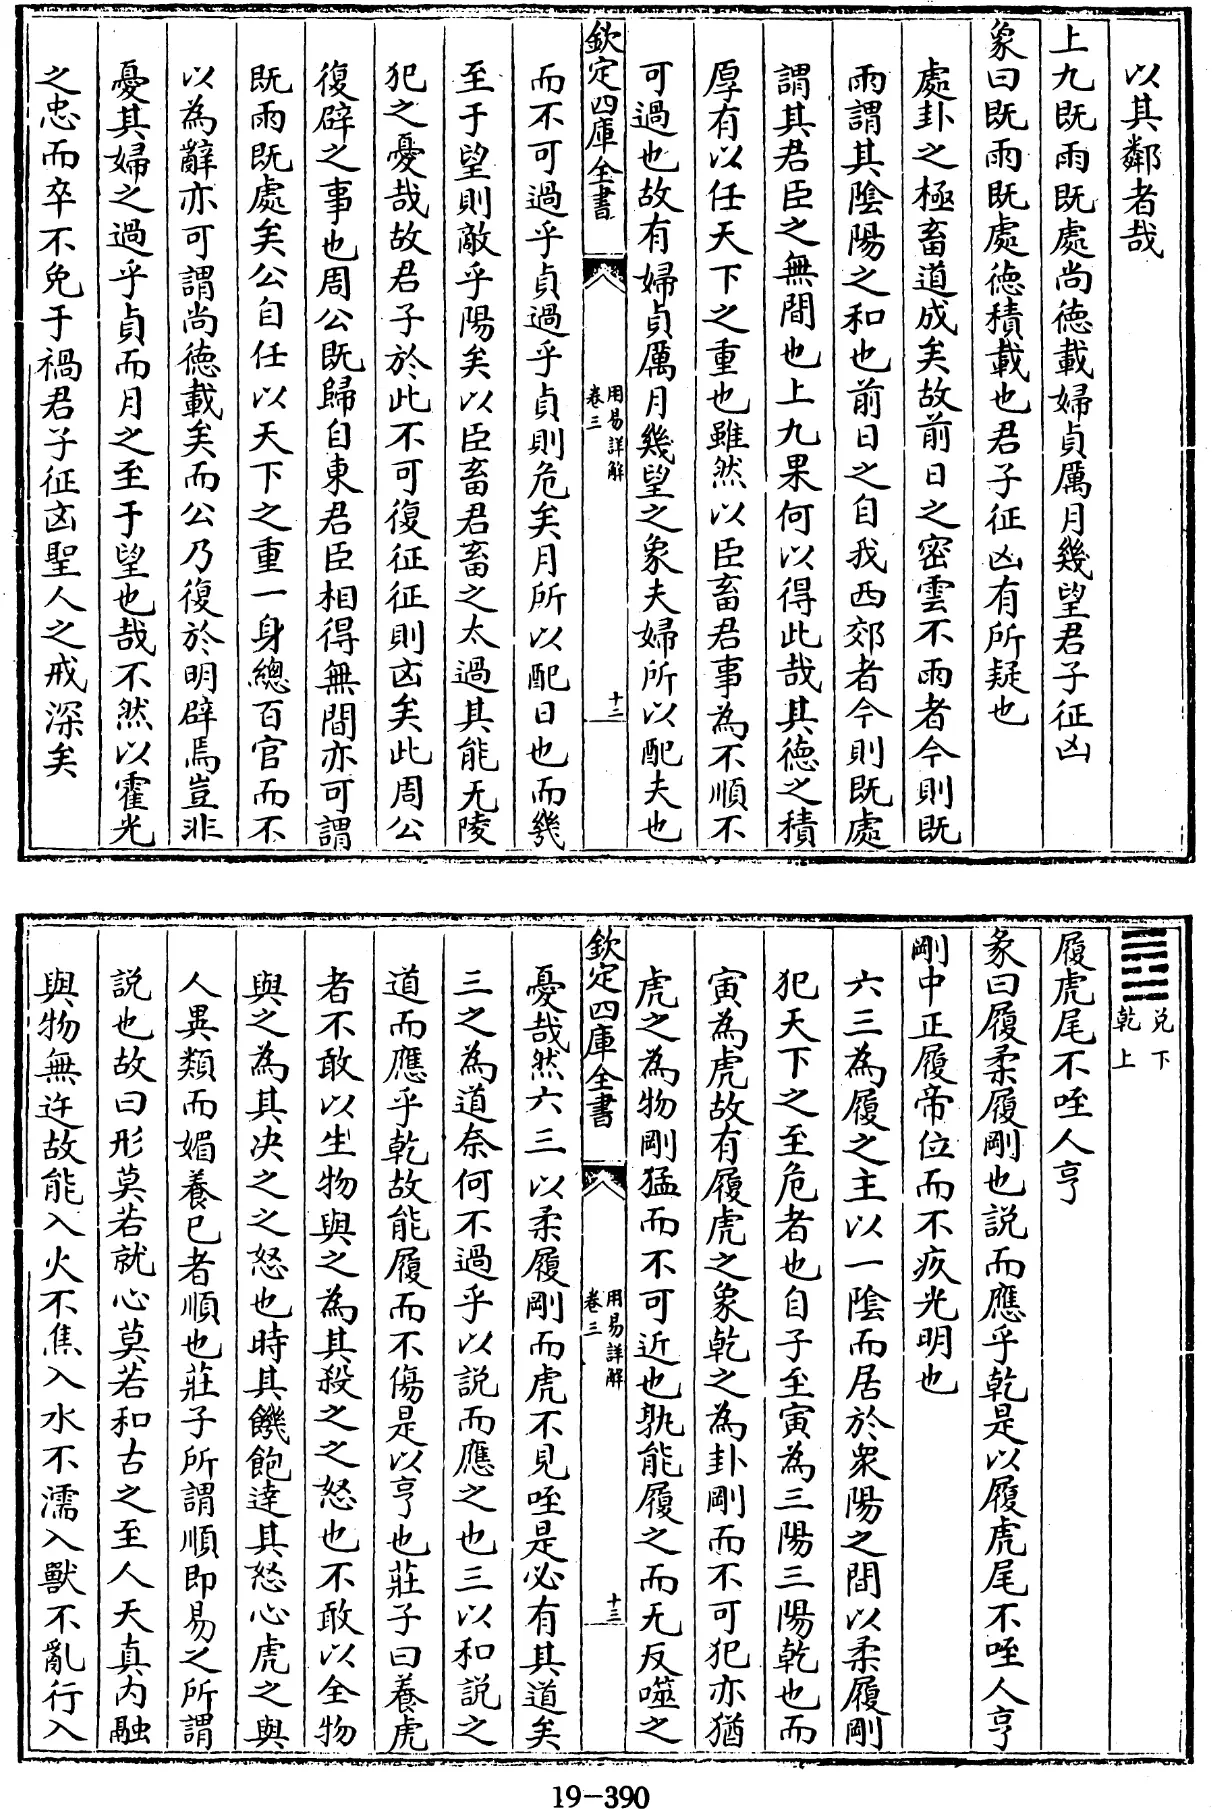 以其鄰者哉
上九既雨既處尚德載婦貞厲月幾望君子征凶
象曰既雨既處德積載也君子征凶有所疑也
處卦之極畜道成矣故前日之密雲不雨者今則既
雨謂其陰陽之和也前日之自我西郊者今則既處
謂其君臣之無間也上九果何以得此哉其德之積
厚有以任天下之重也雖然以臣畜君事為不順不
可過也故有婦貞厲月幾望之象夫婦所以配夫也
欽定四庫全書
用易詳解
卷三
十二
而不可過乎貞過乎貞則危矣月所以配日也而幾
至于望則敵乎陽矣以臣畜君畜之太過其能无陵
犯之憂哉故君子於此不可復征征則凶矣此周公
復辟之事也周公既歸自東君臣相得無間亦可謂
既雨既處矣公自任以天下之重一身總百官而不
以為辭亦可謂尚德載矣而公乃復於明辟焉豈非
憂其婦之過乎貞而月之至于望也哉不然以霍光
之忠而卒不免于禍君子征凶聖人之戒深矣
兌下
乾上
履虎尾不咥人亨
彖曰履柔履剛也説而應乎乾是以履虎尾不咥人亨
剛中正履帝位而不疚光明也
六三為履之主以一陰而居於衆陽之間以柔履剛
犯天下之至危者也自子至寅為三陽三陽乾也而
寅為虎故有履虎之象乾之為卦剛而不可犯亦猶
虎之為物剛猛而不可近也孰能履之而无反噬之
欽定四庫全書
用易詳解
卷三
十三
憂哉然六三以柔履剛而虎不見咥是必有其道矣
三之為道奈何不過乎以説而應之也三以和説之
道而應乎乾故能履而不傷是以亨也莊子曰養虎
者不敢以生物與之為其殺之之怒也不敢以全物
與之為其决之之怒也時其饑飽達其怒心虎之與
人異類而媚養己者順也莊子所謂順即易之所謂
説也故曰形莫若就心莫若和古之至人天真内融
與物無迕故能入火不焦入水不濡入獸不亂行入
19-390